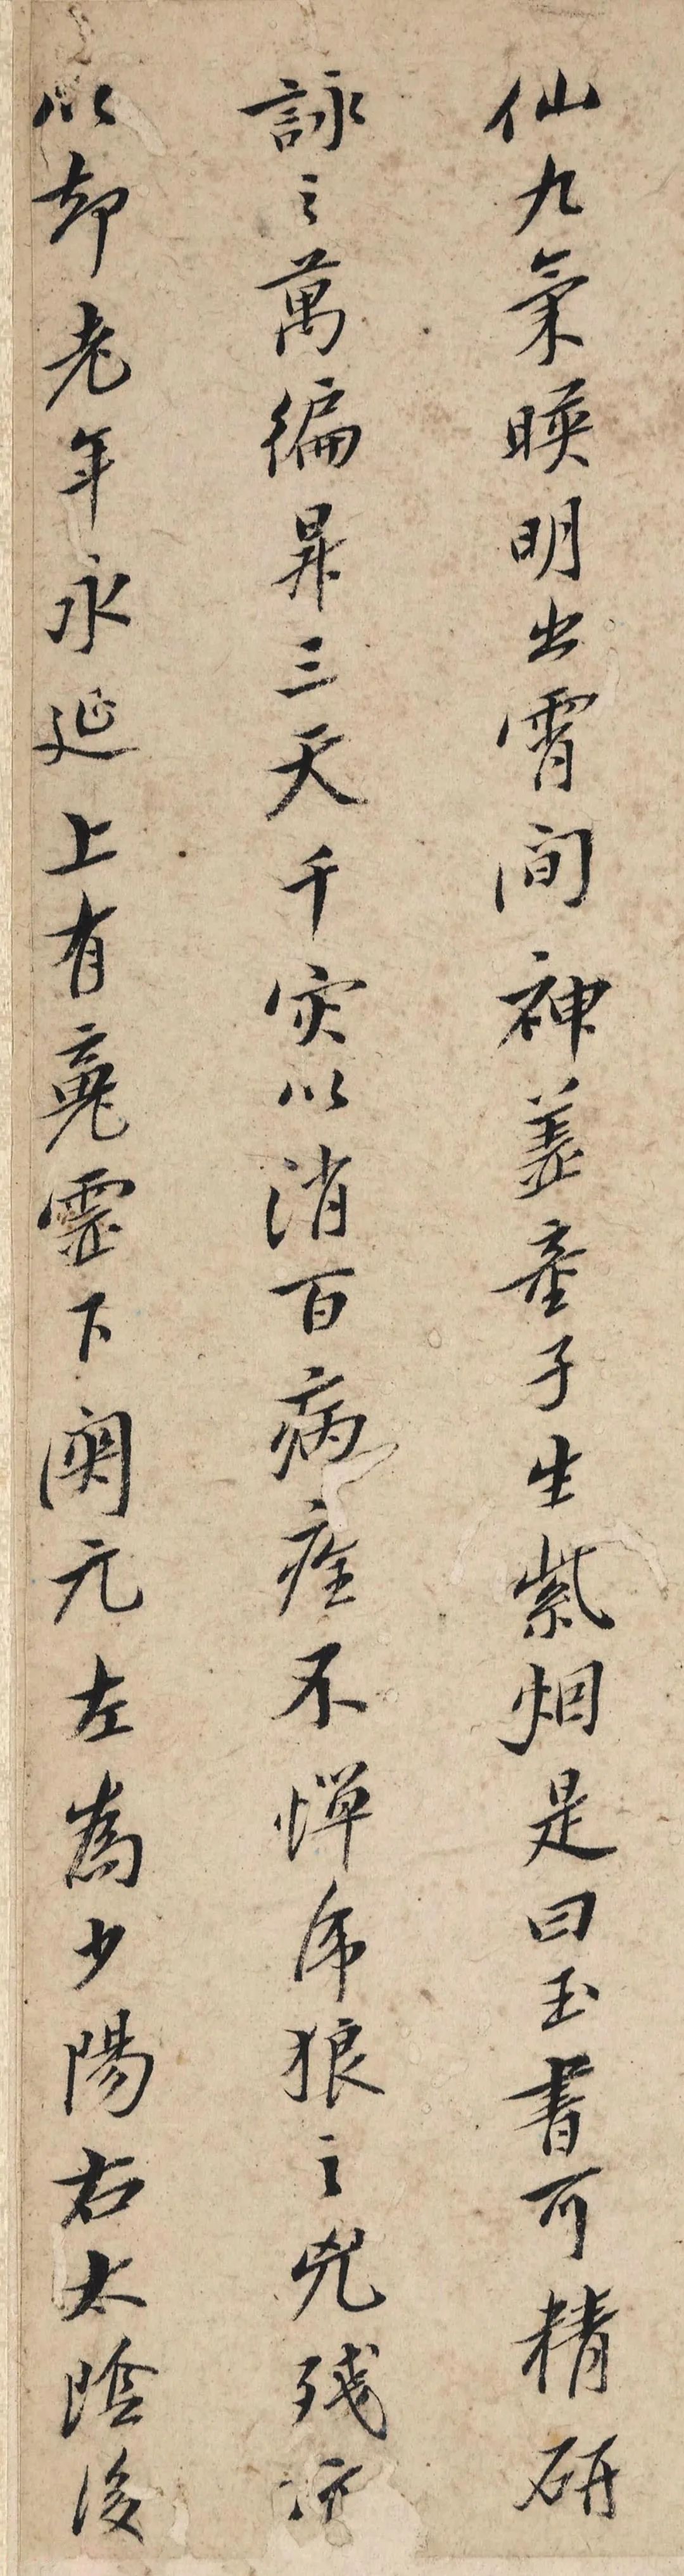 仙九氣暎明出霄間神葢童子生紫烟是曰玉書可精研
詠之萬徧昇三天千灾以消百病痊不惮虎狼之兇残亦
以却老年永延上有䰟靈下関元左為少陽右太陰後